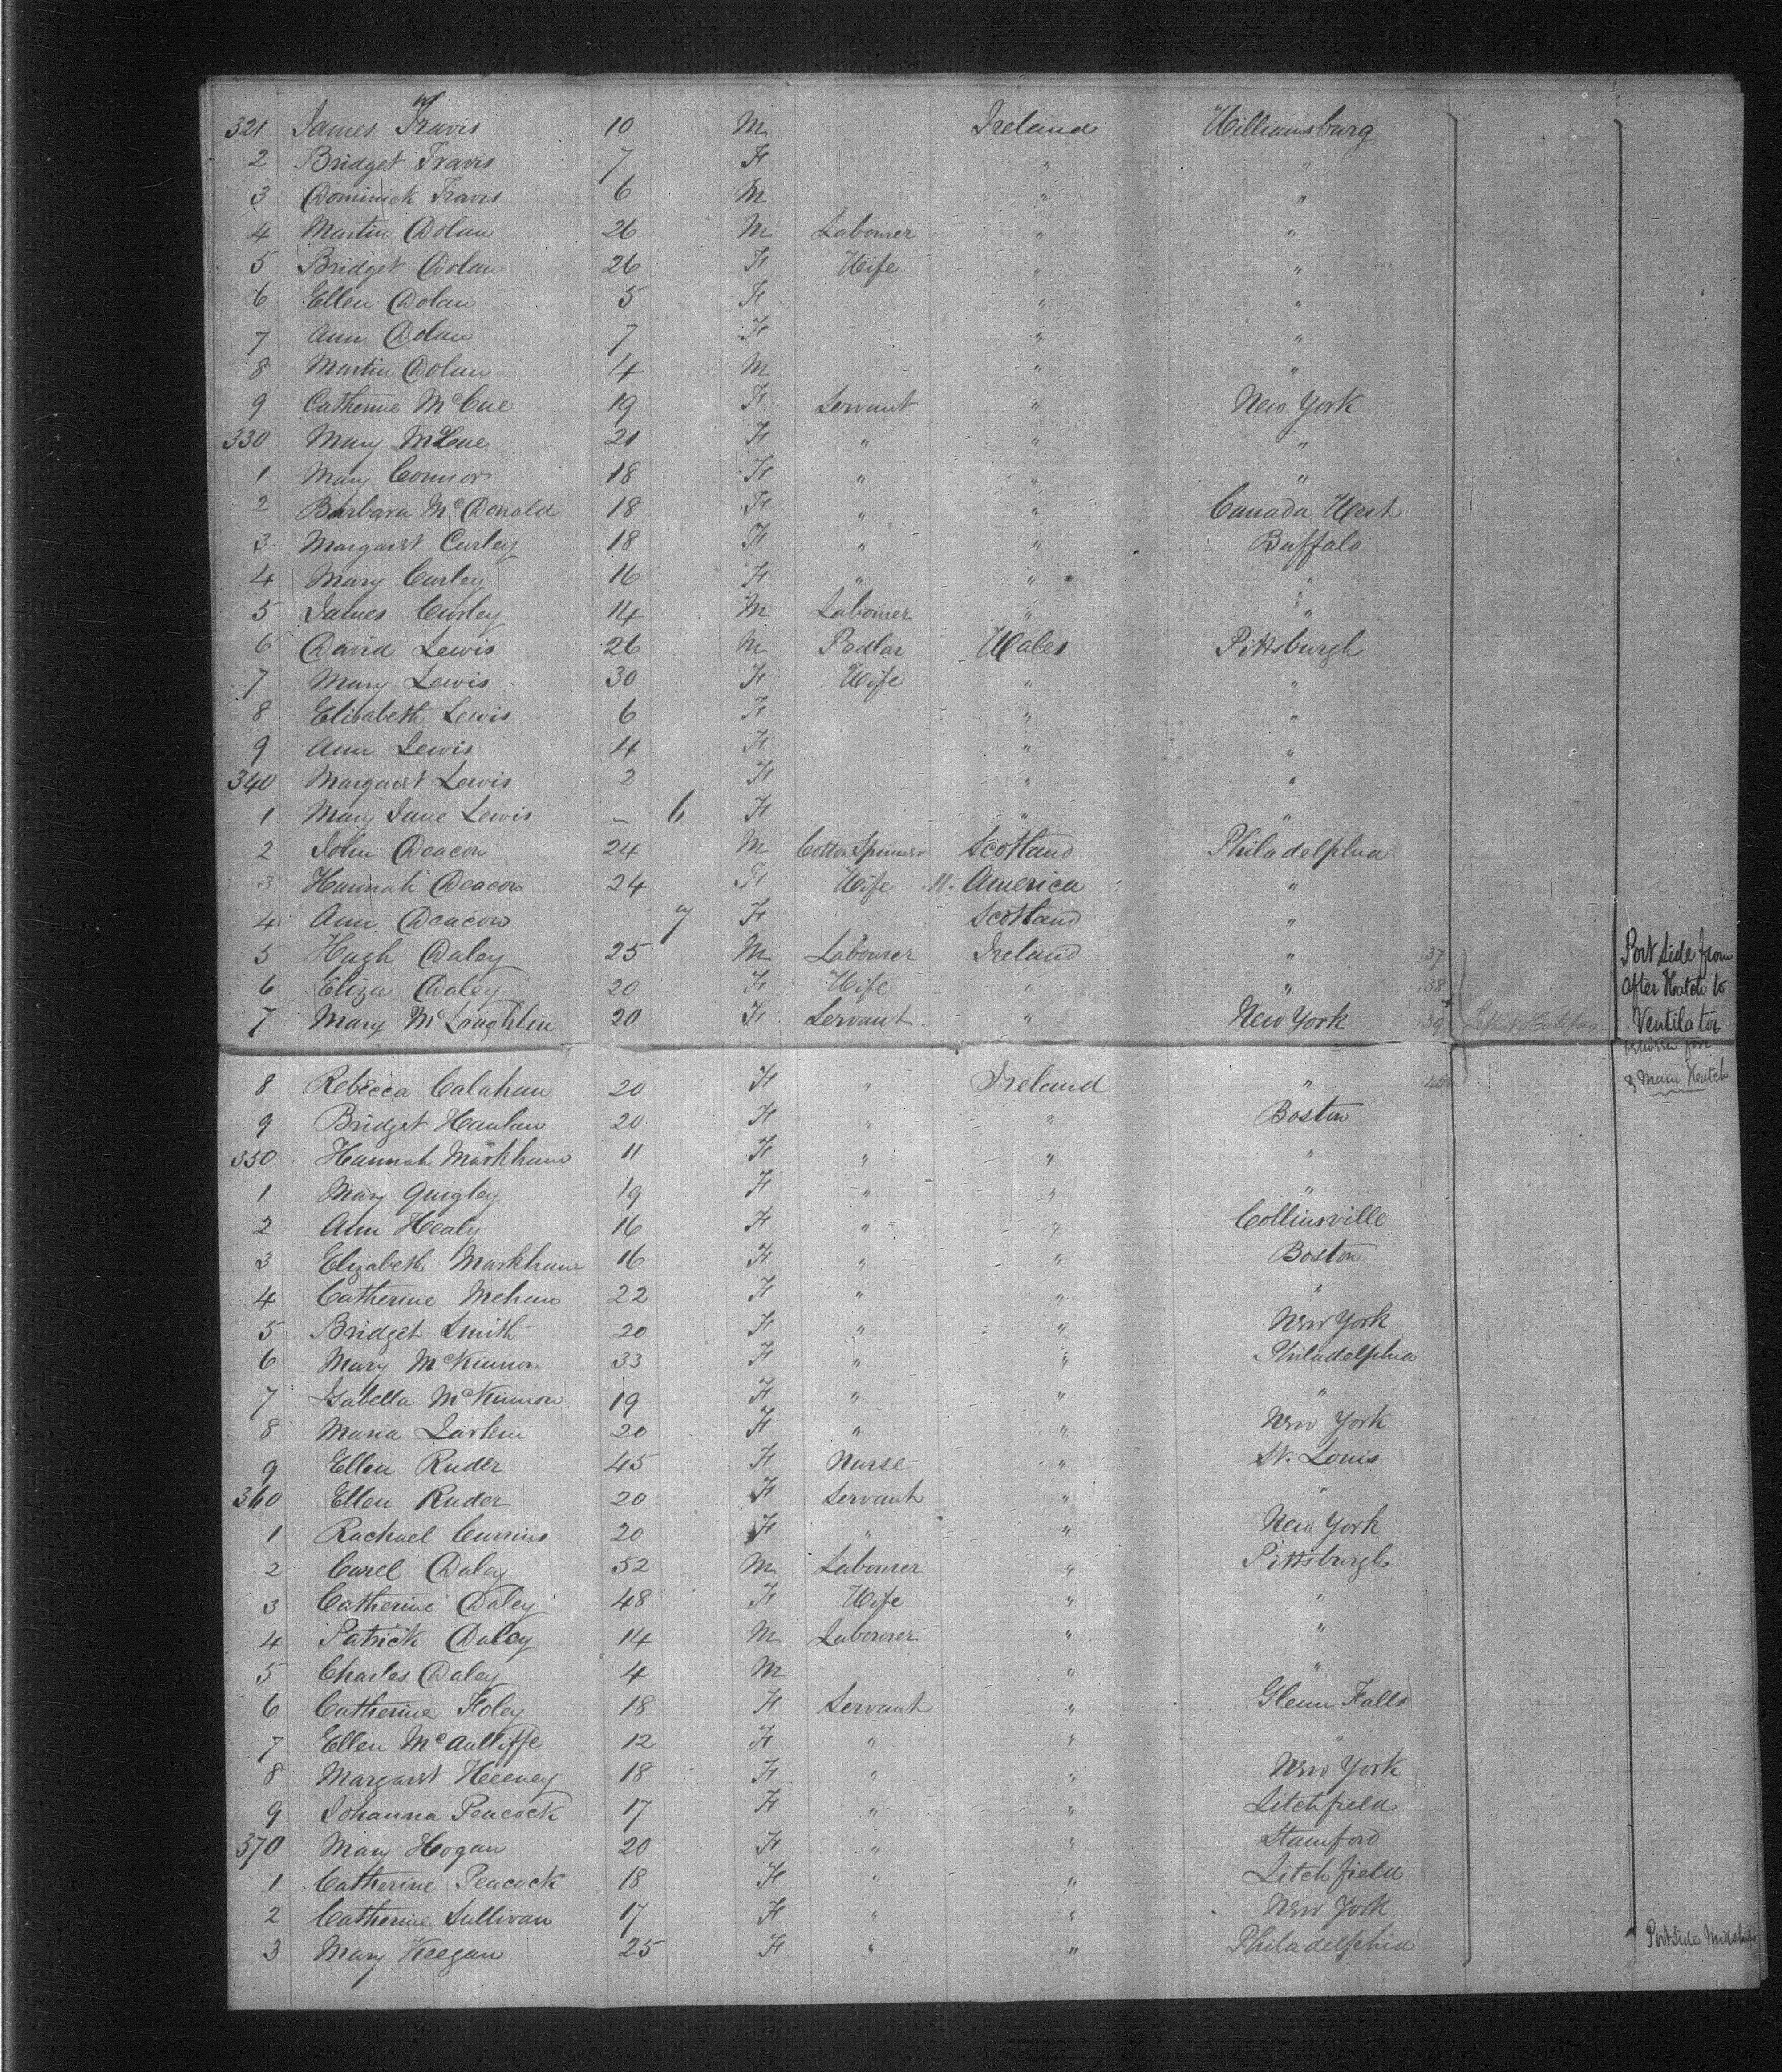 321 James Travis 10 M Ireland Williamsburg
2 Bridget Travis 7 F " "
3 Dominick Travis 6 M " "
4 Martin Dolan 26 M Labourer " "
5 Bridget Dolan 26 F Wife " "
6 Ellen Dolan 5 F " "
7 Ann Dolan 7 F " "
8 Martin Dolan 4 M " "
9 Catherine McCue 19 F Servant " New York
330 Mary McCue 21 F " " "
1 Mary Connor 18 F " " "
2 Barbara McDonald 18 F " " Canada West
3 Margaret Curley 18 F " " Buffalo
4 Mary Curley 16 F " " "
5 James Curley 14 M Labourer " "
6 David Lewis 26 M Pedlar Wales Pittsburgh
7 Mary Lewis 30 F Wife " "
8 Elisabeth Lewis 6 F " "
9 Ann Lewis 4 F " "
340 Margaret Lewis 2 F " "
1 Mary Jane Lewis – 6 F " "
2 John Deacon 24 M Cotton Spinner Scotland Philadelphia
3 Hannah Deacon 24 F Wife N. America "
4 Ann Deacon 7 F Scotland "
5 Hugh Daley 25 M Labourer Ireland " 37 Port side from
6 Eliza Daley 20 F Wife " " 38 After Hatch to
7 Mary McLoughlin 20 F Servant " New York 39 Left at Halifax Ventilator
between fore
8 Rebecca Calahan 20 F " Ireland " 40 & Main Hatch
9 Bridget Hanlan 20 F " " Boston
350 Hannah Markham 11 F " " "
1 Mary Quigley 19 F " " "
2 Ann Healy 16 F " " Collinsville
3 Elizabeth Markham 16 F " " Boston
4 Catherine Mehan 22 F " " "
5 Bridget Smith 20 F " " New York
6 Mary McKinnon 33 F " " Philadelphia
7 Isabella McKinnon 19 F " " "
8 Maria Larkin 20 F " " New York
9 Ellen Ruder 45 F Nurse " St. Louis
360 Ellen Ruder 20 F Servant " "
1 Rachael 20 F " " New York
2 Carel Daley 52 M Labourer " Pittsburgh
3 Catherine Daley 48 F Wife " "
4 Patrick Daley 14 M Labourer " "
5 Charles Daley 4 M " "
6 Catherine Foley 18 F Servant " Glenn Falls
7 Ellen McAulliffe 12 F " " "
8 Margaret Heeney 18 F " " New York
9 Johanna Peacock 17 F " " Litchfield
370 Mary Hogan 20 F " " Stamford
1 Catherine Peacock 18 F " " Litchfield
2 Catherine Sullivan 17 F " " New York
3 Mary Keegan 25 F " " Philadelphia Port Side Midships